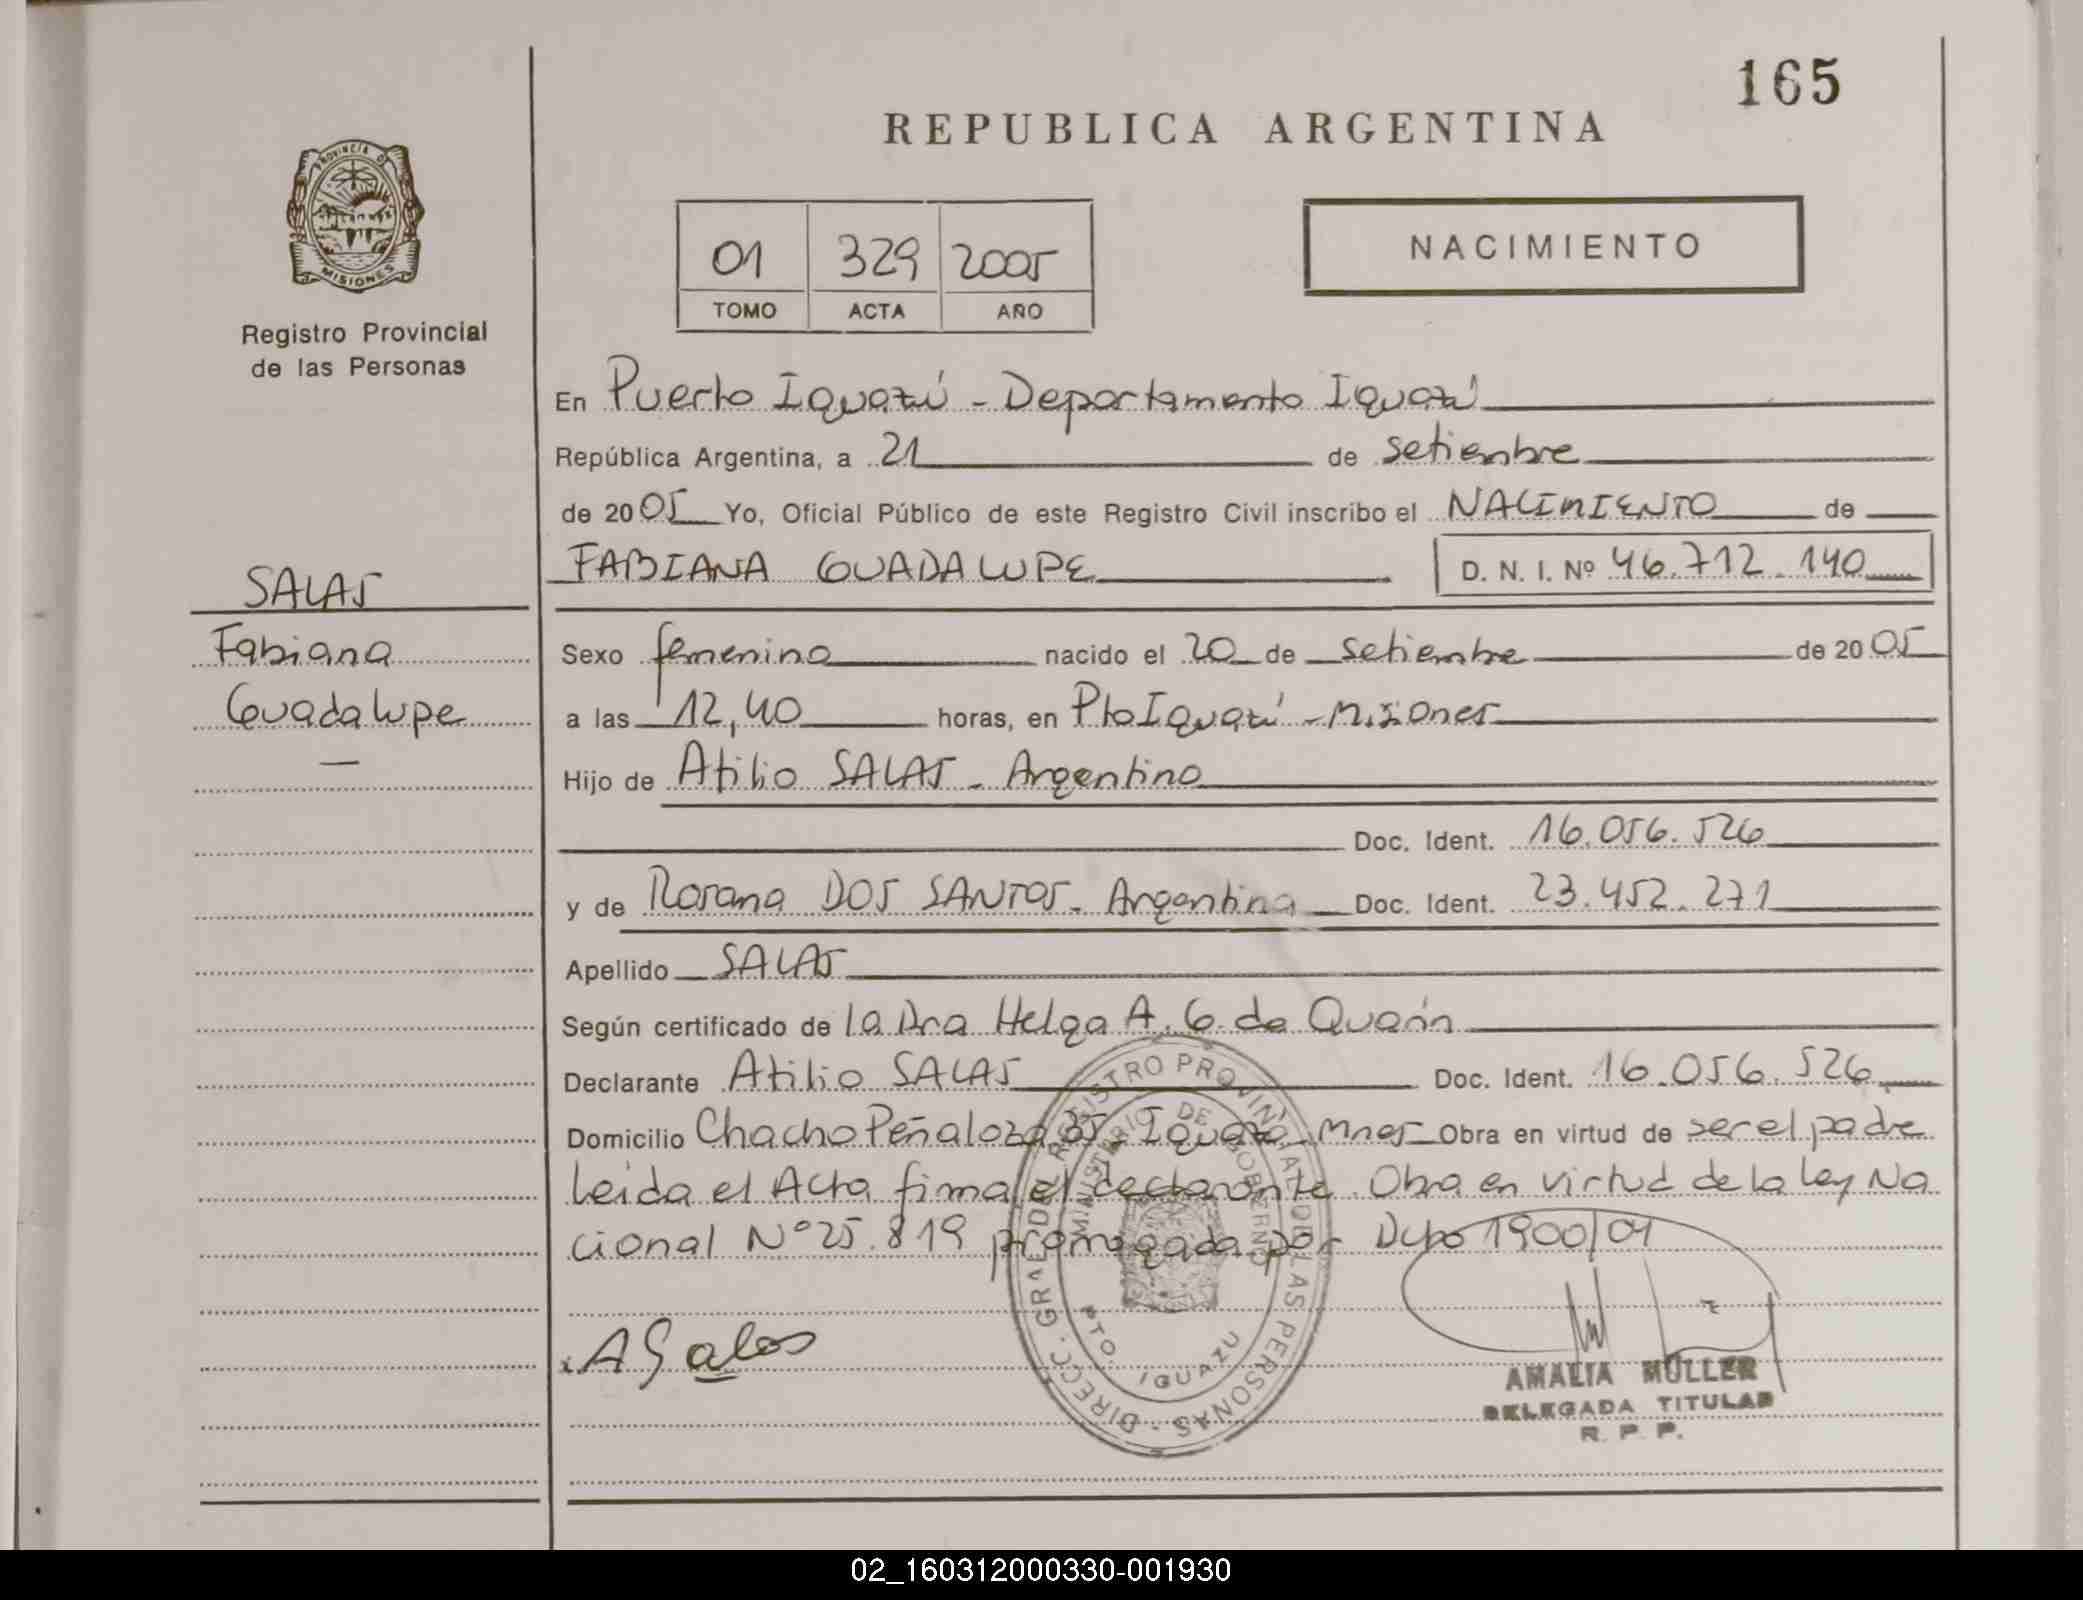 165
REPUBLICA ARGENTINA
PROVINCIA DE
MISIONES
Registro Provincial
de las Personas
01 329 2005
TOMO ACTA AÑO
NACIMIENTO
En Puerto Iguazú - Departamento Iguazú
República Argentina, a 21 de setiembre
de 2005 Yo, Oficial Público de este Registro Civil inscribo el NACIMIENTO de
FABIANA GUADALUPE D. N. I. Nº 46.712.140
SALAS
Fabiana
Guadalupe
—
Sexo femenino nacido el 20 de setiembre de 2005
a las 12,40 horas, en Pto Iguazú - Misiones
Hijo de Atilio SALAS - Argentino
Doc. Ident. 16.056.526
y de Rosana DOS SANTOS - Argentina Doc. Ident. 23.452.271
Apellido SALAS
Según certificado de la Dra Helga A. G. de Quarín
Declarante Atilio SALAS Doc. Ident. 16.056.526
Domicilio Chacho Peñaloza 35 - Iguazú - Mnes Obra en virtud de ser el padre
Leida el Acta firma el declarante. Obra en virtud de la Ley Na
cional Nº 25.819 prorrogada por Dcto 1900/04
DIRECC. GRAL. DEL REGISTRO PROVINCIAL DE LAS PERSONAS
MINISTERIO DE GOBIERNO
PTO. IGUAZU
A Salas
AMALIA MÜLLER
DELEGADA TITULAR
R. P. P.
02_160312000330-001930